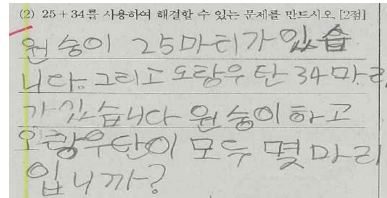 (2) 25+34를 사용하여 해결할 수 있는 문제를 만드시오. [2점]
원숭이 25마티가 있습
니다. 그리고 오랑우탄 34마리
가 있습니다 원숭이하고
오랑우탄이 모두 몇마리
입니까?